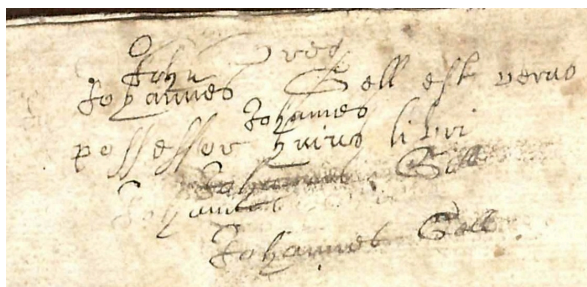 John
Johannes Sell est verus
Johannes
possessor huius libri
Johannes Sell
Johannes
Johannes Sell